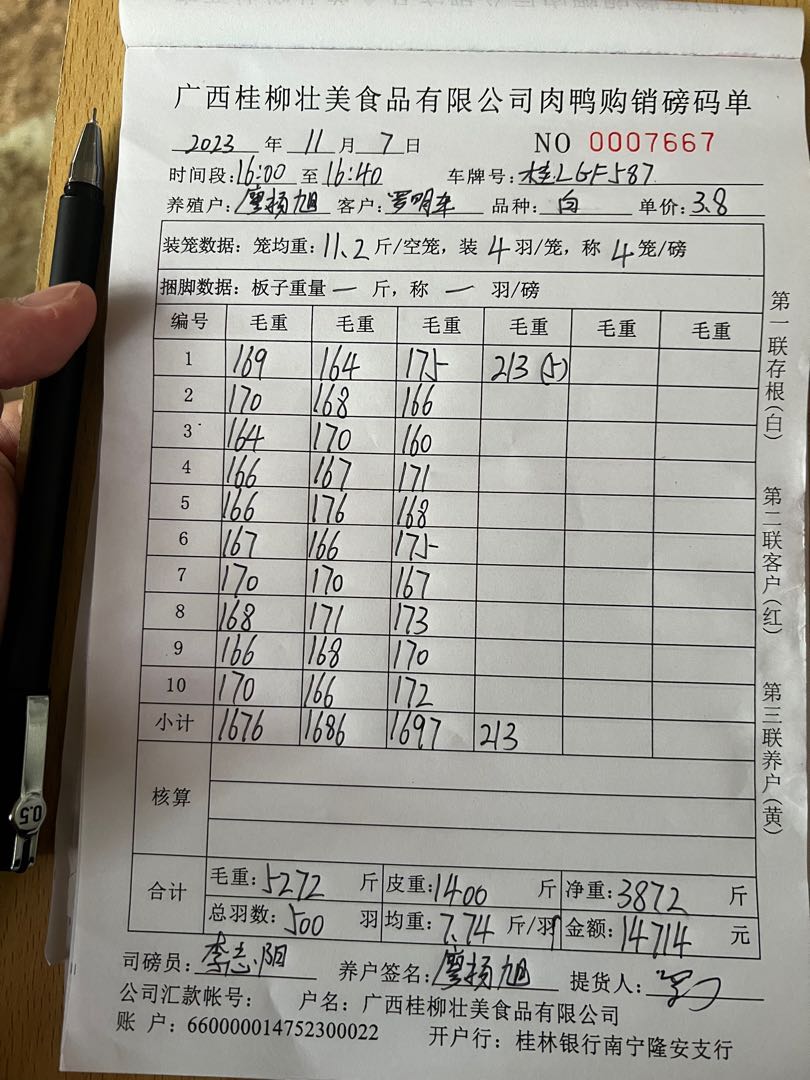 广西桂柳壮美食品有限公司肉鸭购销磅码单
2023 年 11 月 7 日 NO 0007667
时间段:16:00 至 16:40 车牌号:桂LGF587
养殖户:廖扬旭 客户:罗明车 品种:白 单价:3.8
装笼数据:笼均重:11.2 斤/空笼,装 4 羽/笼,称 4 笼/磅
捆脚数据:板子重量 一 斤,称 一 羽/磅
编号 毛重 毛重 毛重 毛重 毛重 毛重
1 169 164 175 213 (5)
2 170 168 166
3 164 170 160
4 166 167 171
5 166 176 168
6 167 166 175
7 170 170 167
8 168 171 173
9 166 168 170
10 170 166 172
小计 1676 1686 1697 213
核算
合计 毛重:5272 斤 皮重:1400 斤 净重:3872 斤
总羽数:500 羽 均重:7.74 斤/羽 金额:14714 元
司磅员:李志阳 养户签名:廖扬旭 提货人:
公司汇款帐号: 户名:广西桂柳壮美食品有限公司
账 户:660000014752300022 开户行:桂林银行南宁隆安支行
第一联存根(白) 第二联客户(红) 第三联养户(黄)
0.5